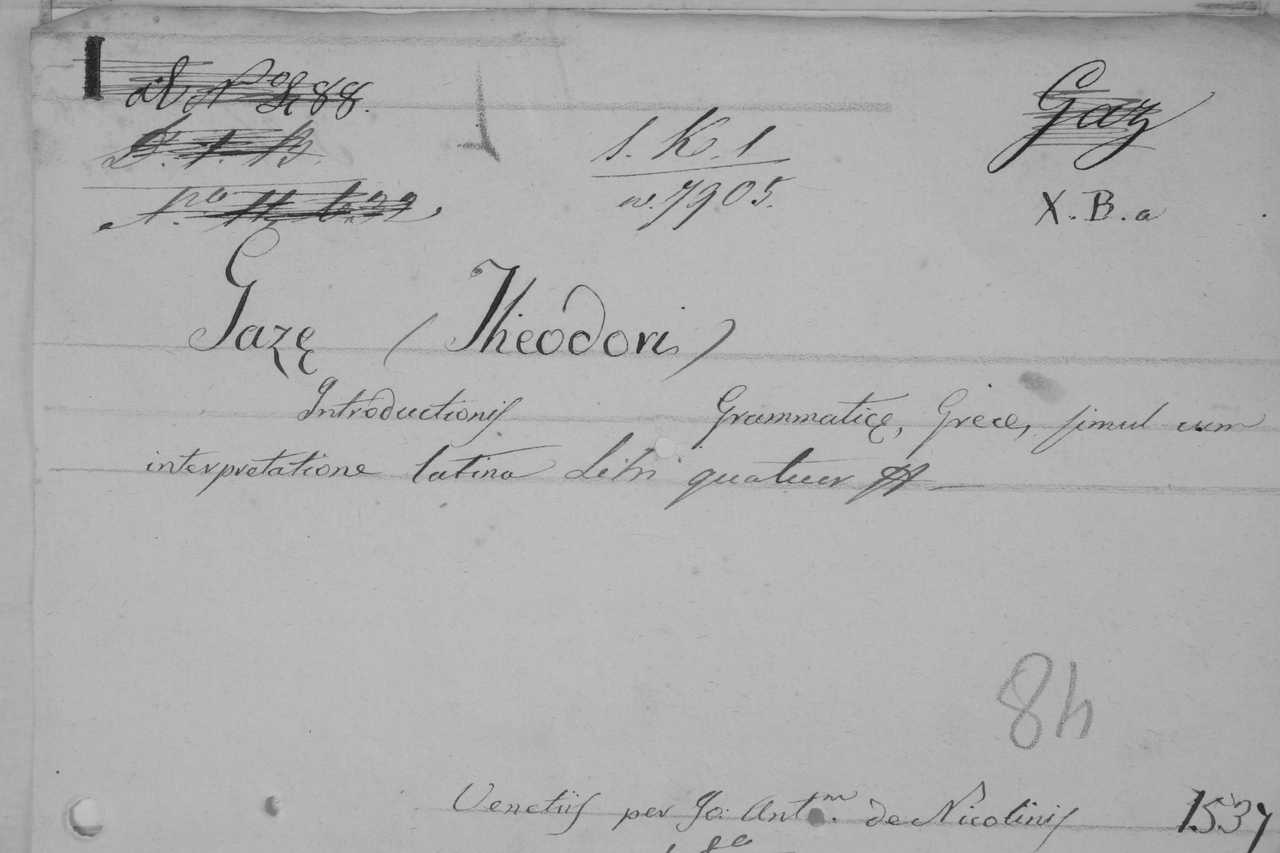 al N.º 488.
Gaz
D. 1. B
S. K. 1
n. 7905.
X. B. a
Gazę (Theodori)
Introductionis Grammaticę, Grece, simul cum
interpretatione latina Libri quatuor
84
Venetiis per Jo: Ant.m de Nicolinis 1537